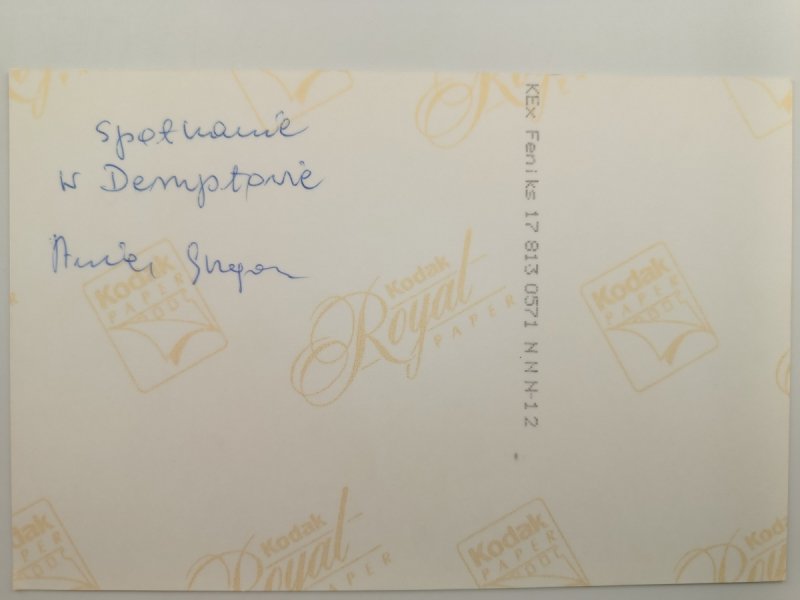 Spotkanie
w Demptowie
Kodak
PAPER
Kodak
Royal
PAPER
Kodak
PAPER
KEx Feniks 17 813 0571 N N N-12
Kodak
PAPER
Kodak
Royal
PAPER
Kodak
PAPER